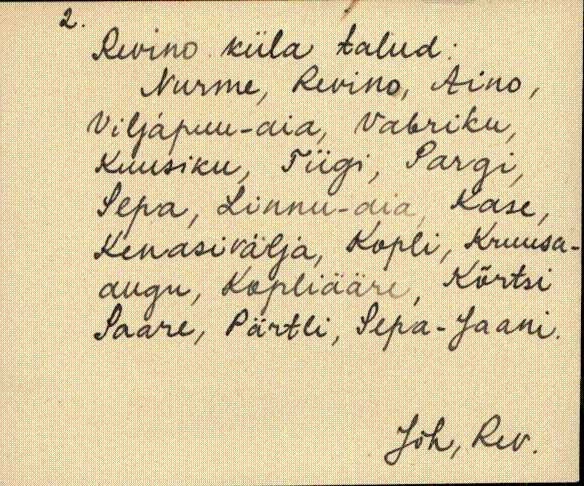 2.
Revino küla talud:
Nurme, Revino, Aino,
Viljapuu-aia, Vabriku,
Kuusiku, Tiigi, Pargi,
Sepa, Linnu-aia, Kase,
Kenasivälja, Kopli, Kruusa-
augu, Kopliääre, Kõrtsi
Saare, Pärtli, Sepa-Jaani.
Joh, Rev.